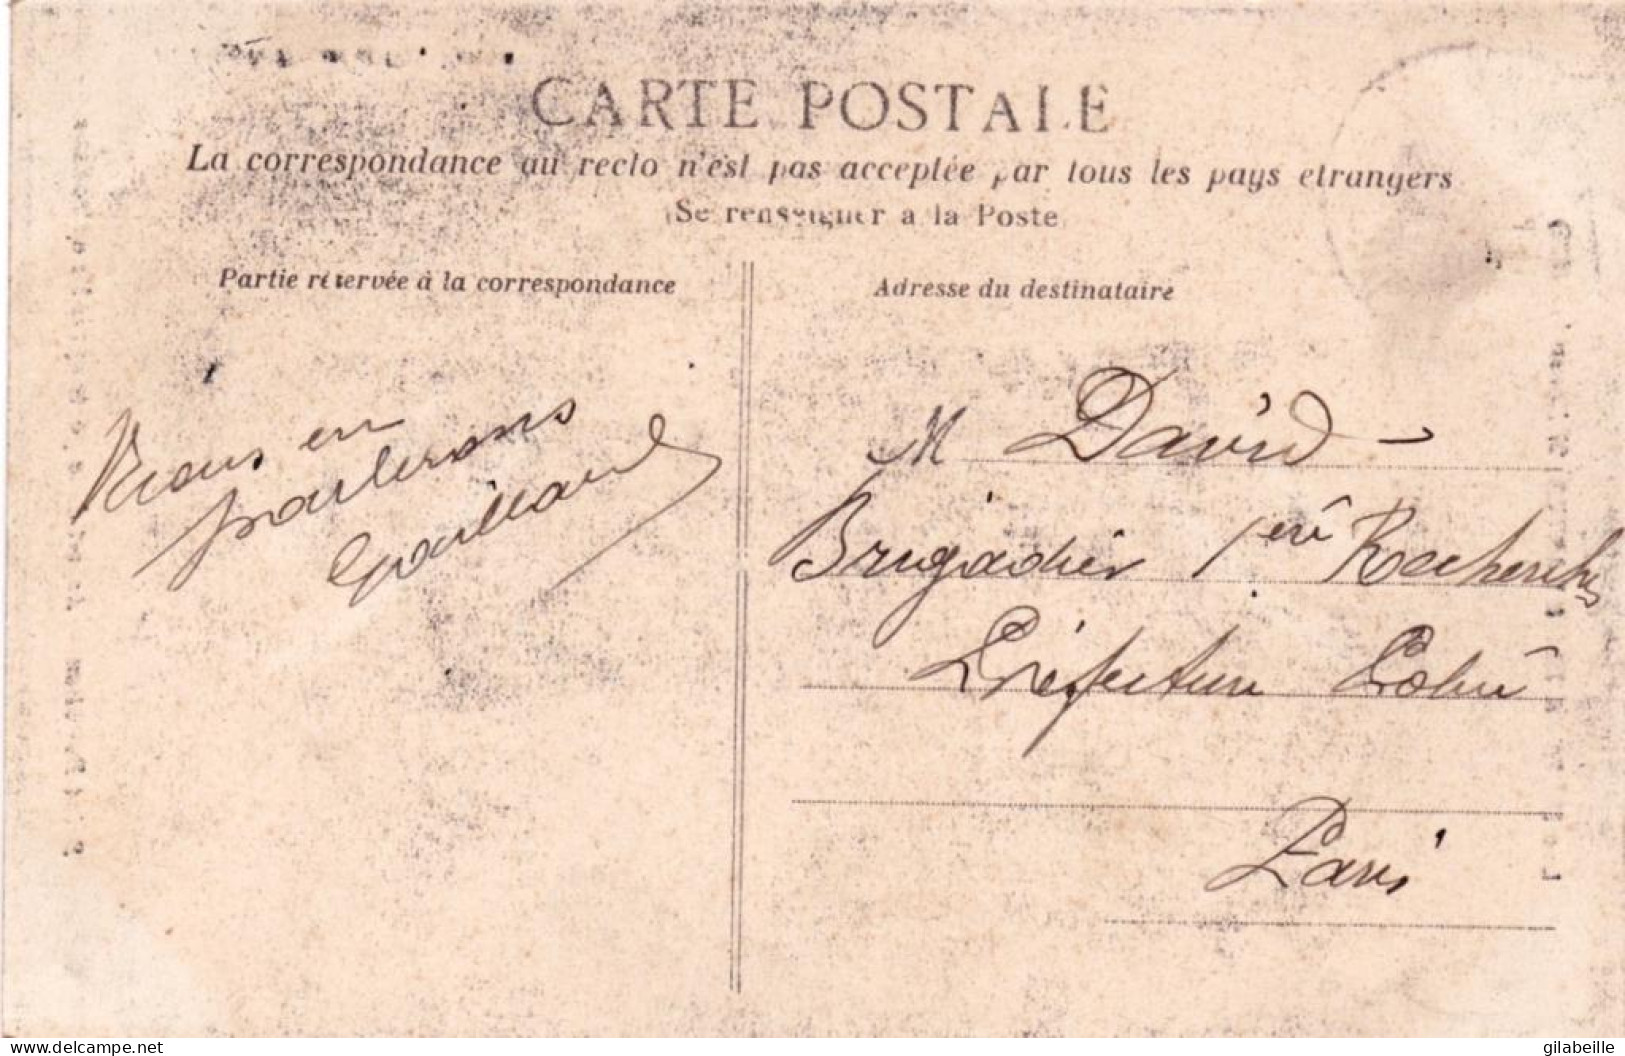 CARTE POSTALE
La correspondance au recto n'est pas acceptée par tous les pays etrangers
(Se renseigner a la Poste
Partie réservée à la correspondance
Adresse du destinataire
Nous en
parlerons
Gaillard
M David
Brigadier 1ere Recherches
Préfecture Police
Paris
delcampe.net
gilabeille